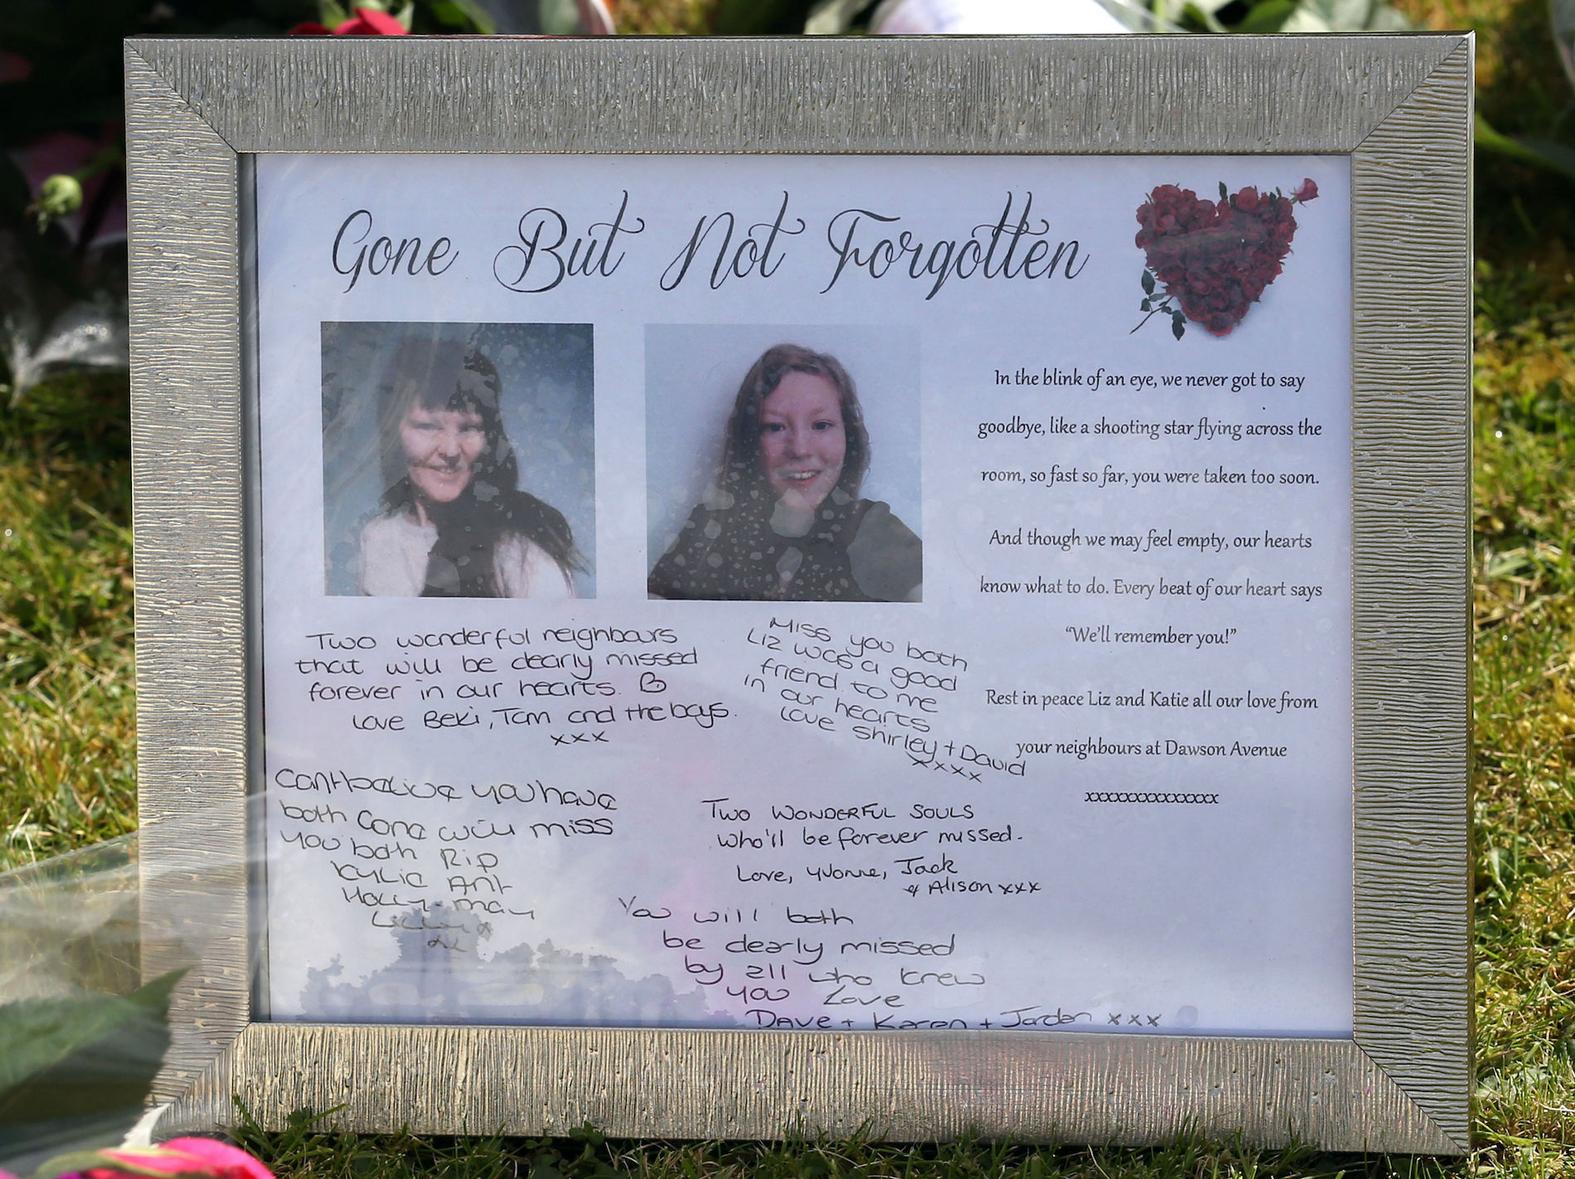 Gone But Not Forgotten
In the blink of an eye, we never got to say
goodbye, like a shooting star flying across the
room, so fast so far, you were taken too soon.
And though we may feel empty, our hearts
know what to do. Every beat of our heart says
“We'll remember you!”
Rest in peace Liz and Katie all our love from
your neighbours at Dawson Avenue
xxxxxxxxxxxxxx
Two wonderful neighbours
that will be dearly missed
forever in our hearts.
Love Beki, Tom and the boys.
xxx
Miss you both
Liz was a good
friend to me
in our hearts
Love Shirley + David
xxxx
Cant believe you have
both Gone will miss
You both Rip
Kylie Ant
Holly-may
Two WONDERFUL SOULS
who'll be forever missed.
Love, Yvonne, Jack
& Alison xxx
You will both
be dearly missed
by all who knew
you Love
Dave + Karen + Jordan xxx